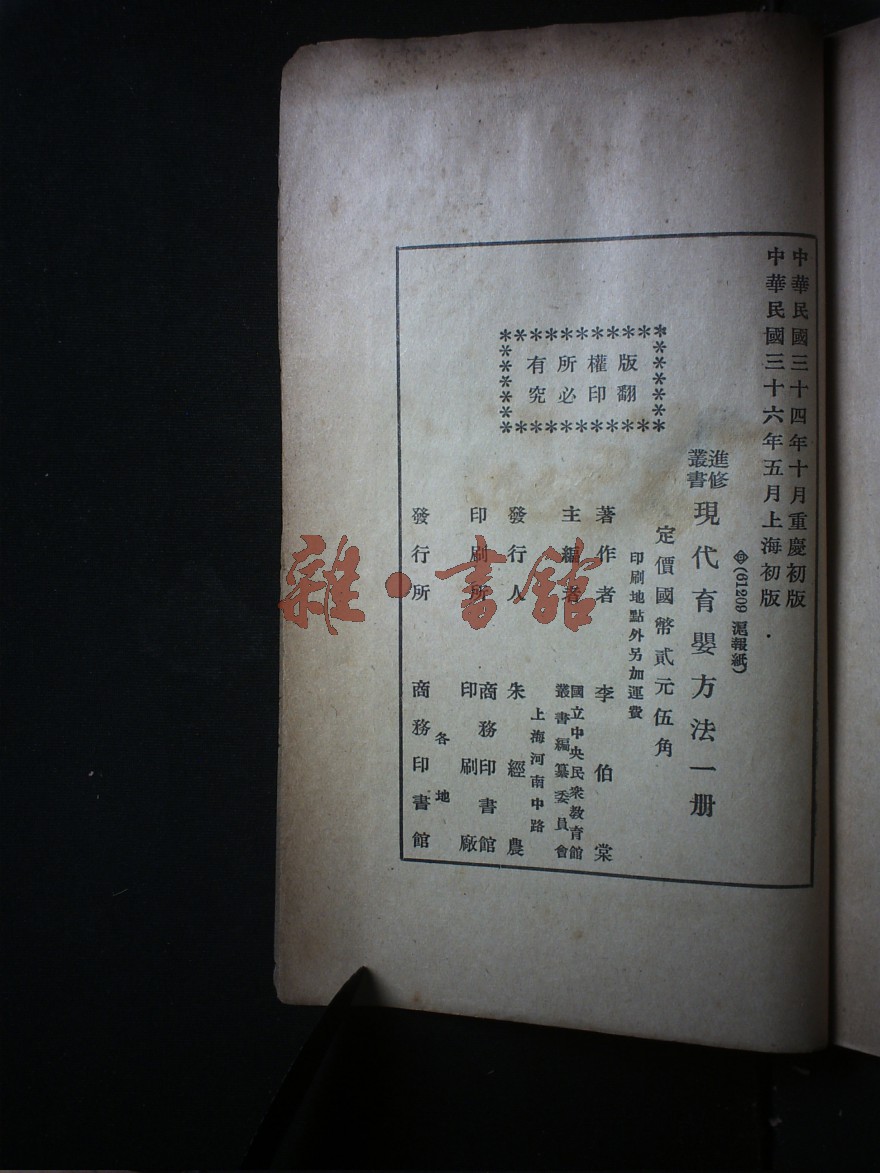 中華民國三十四年十月重慶初版
中華民國三十六年五月上海初版
(61209 滬報紙)
進修
叢書
現代育嬰方法一册
定價國幣貳元伍角
印刷地點外另加運費
版權所有
翻印必究
著作者 李伯棠
主編者 國立中央民衆教育館
叢書編纂委員會
上海河南中路
發行人 朱經農
印刷所 商務印書館
印刷廠
各地
發行所 商務印書館
雜·書館